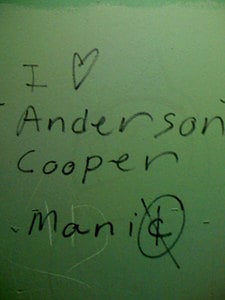 I ♡
Anderson
Cooper
-Mani